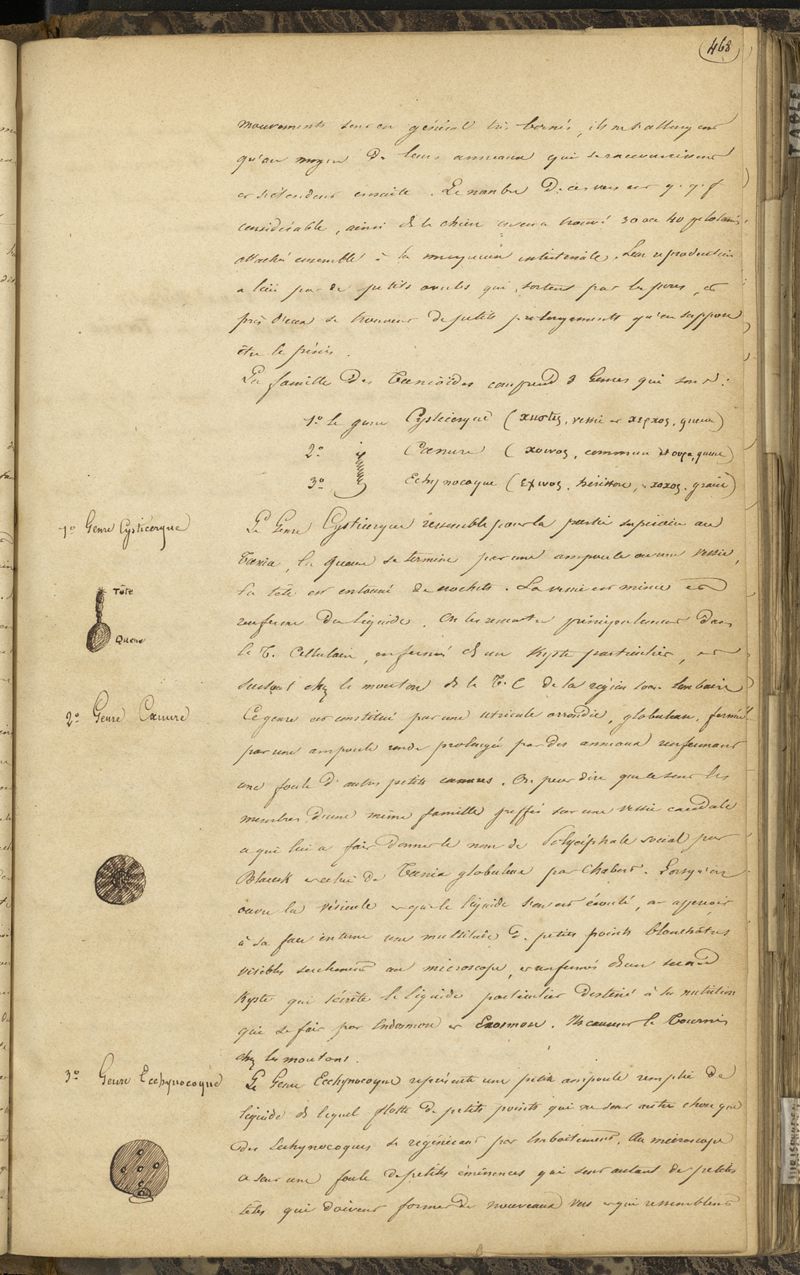 468
mouvements sont en général très bornés, ils
qu'au moyen de leurs anneaux qui se raccourcissent
et s'étendent ensuite. Le nombre de ces vers est q.q.f
considérable, ainsi ds le chien on en a trouvé 30 ou 40 pelotonnés
attaché ensemble à la muqueuse intestinale. Leur reproduction
a lieu par de petits ovules qui sortent par les pores, et
près d'eux se trouvent de petits prolongements qu'on suppose
être le pénis.
La famille des Tænioïdes comprend 3 Genres qui sont :
1º le genre Cysticerque (χυστις, vessie et χερχος, queue)
2º Cænure (χοινος, commun et ουρα, queue)
3º Echynocoque (εχινος, hérisson, χοχος, graine)
1º Genre Cysticerque
Le Genre Cysticerque ressemble pour la partie supérieure au
Tænia, la queue se termine par une ampoule ou une vessie,
la tête est entourée de crochets. La vessie est mince et
renferme du liquide. On les rencontre principalement dans
le T. Cellulaire, enfermés ds un Kyste particulier, et
surtout chez le mouton ds le T. C de la région sous lombaire
Tête
Queue
2º Genre Cænure
Ce genre est constitué par une utricule arrondie, globuleuse, formée
par une ampoule ronde prolongée par des anneaux renfermant
une foule d'autres petits cænures. On peut dire que ce sont les
membres d'une même famille greffés sur une vessie caudale
ce qui lui a fait donner le nom de Polycéphale social par
et celui de Tænia globuleux par Chabert. Lorsqu'on
ouvre la vésicule et que le liquide s'en est écoulé, on aperçoit
à sa face interne une multitude de petits points blanchâtres
visibles seulement au microscope, et renfermés dans un second
Kyste qui sécrète le liquide particulier destiné à la nutrition
qui se fait par Endosmose et Exosmose. Ils causent le Tournis
chez les moutons.
3º Genre Ecchynocoque
Le Genre Ecchynocoque représente une petite ampoule remplie de
liquide ds lequel flotte de petits points qui ne sont autre chose que
des Echynocoques se régénérant par Emboitement. Au microscope
ce sont une foule de petites éminences qui sont autant de petites
têtes qui doivent former de nouveaux vers et qui ressemblent
TABLE